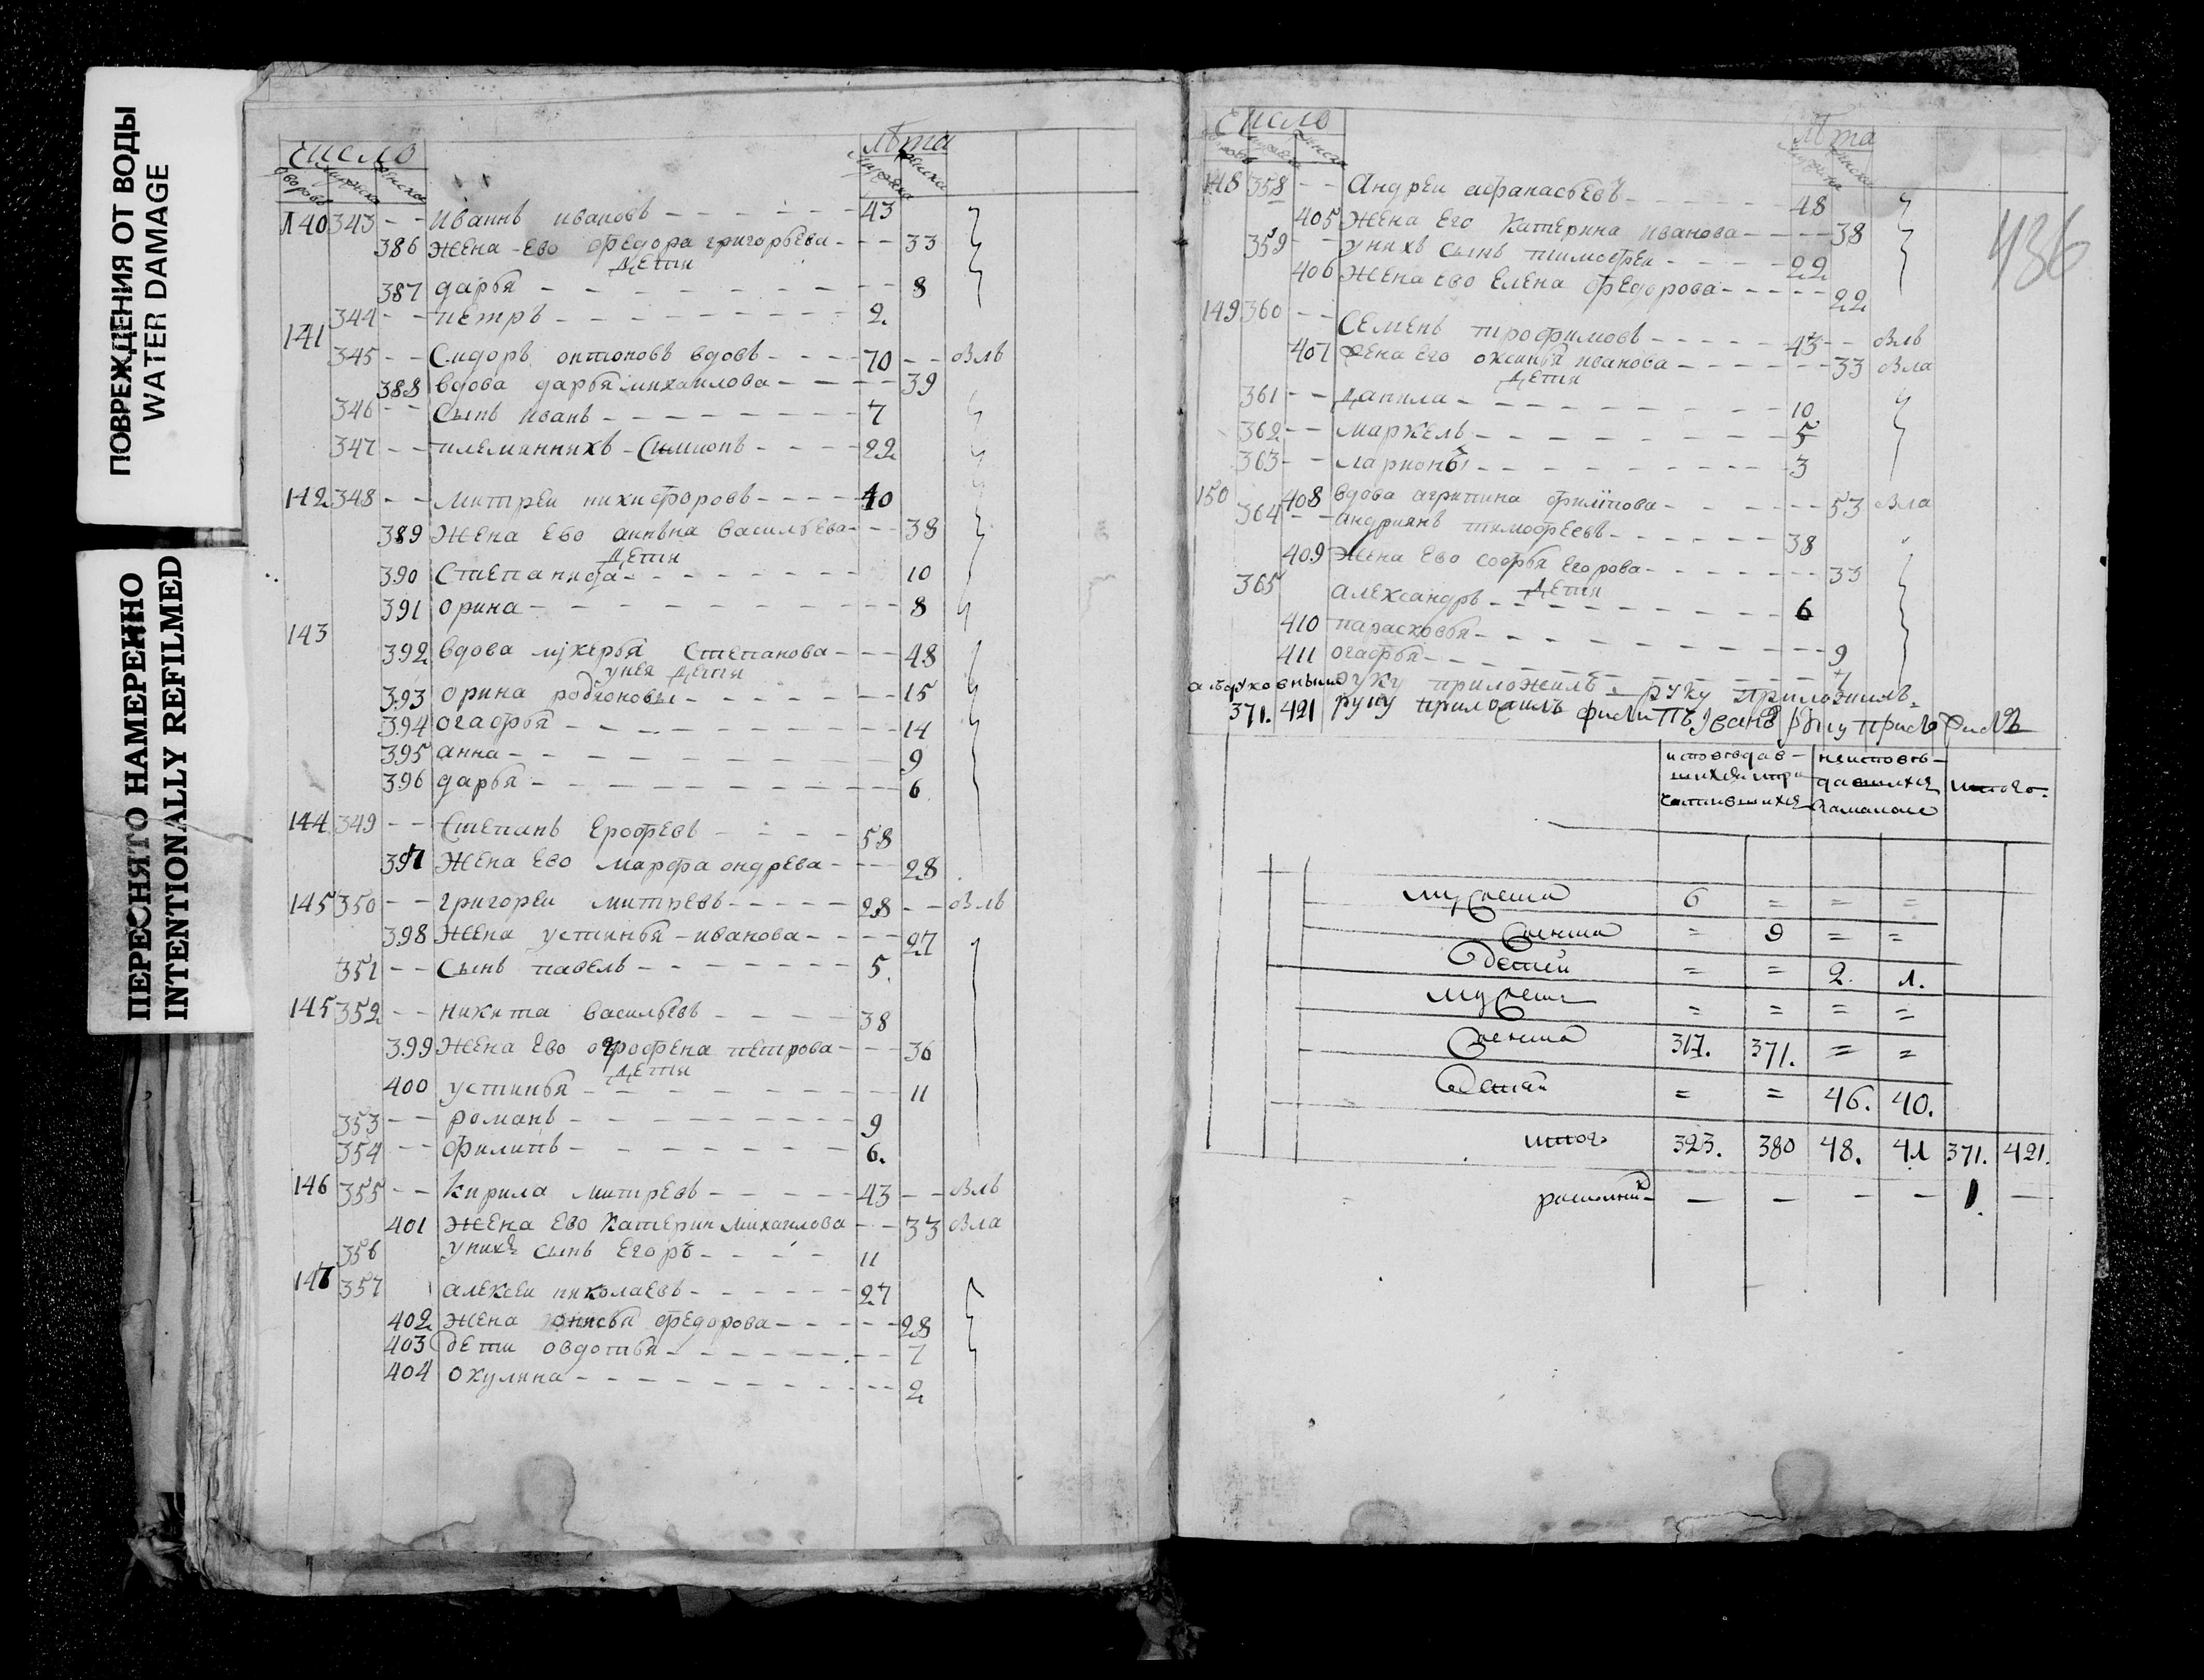 ПОВРЕЖДЕНИЯ ОТ ВОДЫ
WATER DAMAGE
ПЕРЕСНЯТО НАМЕРЕННО
INTENTIONALLY REFILMED
Число Лѣта
140 343 -- Иваннъ ивановъ 43
386 жена ево федора григорьева 33
дети
387 дарья 8
344 -- петръ 2
141
345 -- Сидоръ онтоновъ вдовъ 70 -- Влъ
388 вдова дарья михаилова 39
346 -- Сынъ иванъ 7
347 -- племянникъ Симионъ 22
142 348 -- митреи никифоровъ 40
389 жена ево аннна васильева 38
дети
390 Степанида 10
391 орина 8
143
392 вдова лукерья Степанова 48
унея дети
393 орина родионовы 15
394 огафья 14
395 анна 9
396 дарья 6
144 349 -- Степанъ ерофеевъ 58
397 жена ево марфа ондрева 28
145 350 -- григореи митревъ 28 -- Влъ
398 жена устинья иванова 27
351 -- Сынъ павелъ 5
145 352 -- никита васильевъ 38
399 жена ево огрофена петрова 36
дети
400 устинья 11
353 -- романъ 9
354 -- филипъ 6
146 355 -- кирила митревъ 43 -- Влъ
401 жена ево катерин михаилова 33 Вла
356 унихъ сынъ егоръ 11
147 357 алексеи николаевъ 27
402 жена федорова 28
403 дети овдотья 7
404 окулина 2
Число Лѣта
436
148 358 -- Андреи афанасьевъ 48
405 жена его катерина иванова 38
359 -- унихъ сынъ тимофеи 22
406 жена ево елена федорова 22
149 360 -- Семенъ трофимовъ 43 -- Влъ
407 жена его оксинья иванова 33 Вла
дети
361 -- данила 10
362 -- маркелъ 5
363 -- ларионъ 3
150 408 вдова агрипина филипова 53 Вла
364 -- андриянъ тимофеевъ 38
409 жена ево софья егорова 33
дети
365 александръ 6
410 парасковья 9
411 огафья
руку приложилъ руку приложилъ
371. 421 руку приложилъ филипъ Иванъ
исповедав- неисповѣ- итого
шихся и при- давшихся
частившихся
мужеска 6 = = =
женска = 9 = =
детей = = 2. 1.
мужеска = = = =
женска 317. 371. = =
детей = = 46. 40.
итого 323. 380 48. 41 371. 421.
— — — — 1. —